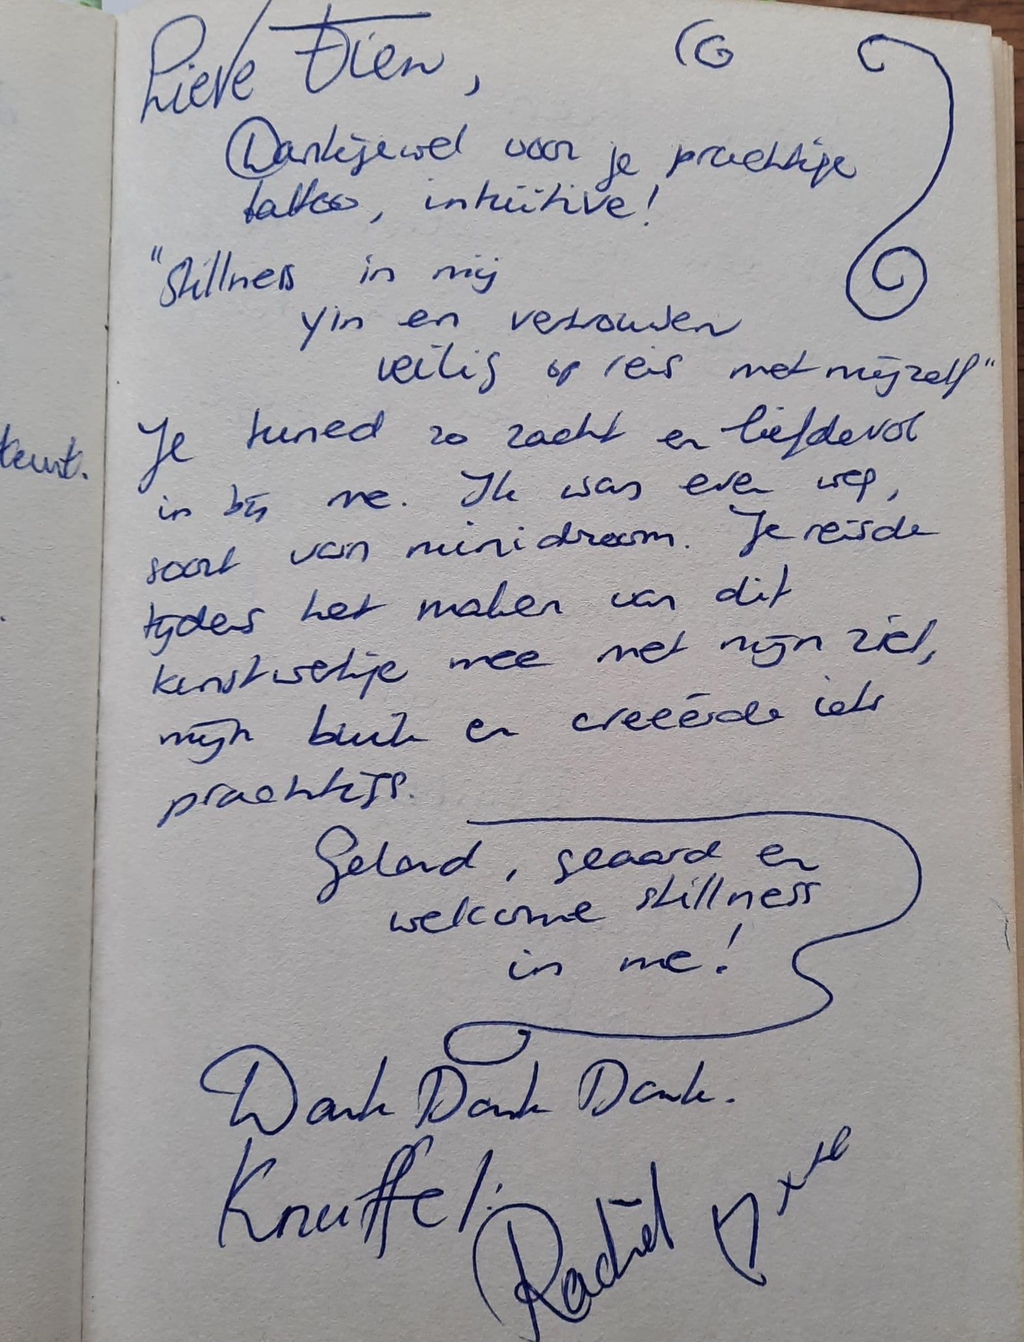 Lieve Dien,
Dankjewel voor je prachtige
tattoo, intuïtive!
"Stillness in mij
yin en vertrouwen
veilig op reis met mijzelf"
Je tuned zo zacht en liefdevol
in bij me. Ik was even weg,
soort van minidroom. Je reisde
tijdens het maken van dit
kunstwerkje mee met mijn ziel,
mijn buik en creëerde iets
prachtigs.
Geland, geaard en
welcome stillness
in me!
Dank Dank Dank.
Knuffel.
Rachel xxx